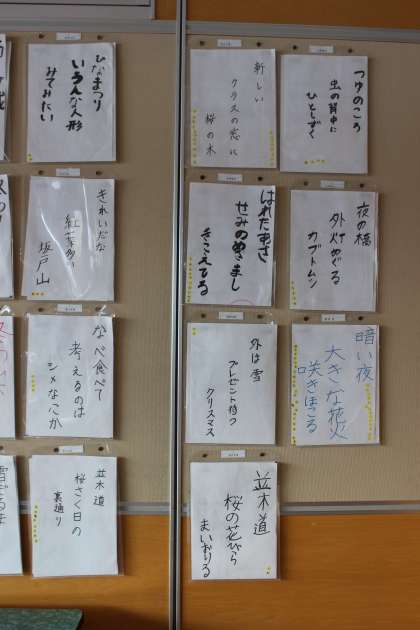 つゆのころ
虫の背中に
ひとしずく
新しい
クラスの窓に
桜の木
ひなまつり
いろんな人形
みてみたい
夜の橋
外灯めぐる
カブトムシ
はれたあさ
せみのめざまし
きこえてる
きれいだな
紅葉多い
坂戸山
暗い夜
大きな花火
咲きほこる
外は雪
プレゼント待つ
クリスマス
なべ食べて
考えるのは
シメなにか
並木道
桜の花びら
まいおりる
並木道
桜さく日の
裏通り